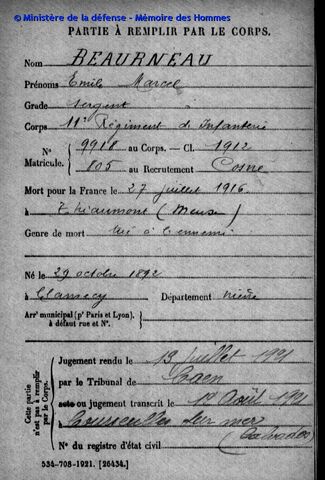 © Ministère de la défense - Mémoire des Hommes
PARTIE À REMPLIR PAR LE CORPS.
Nom BEAURNEAU
Prénoms Emile Marcel
Grade Sergent
Corps 11e Régiment d'Infanterie
N° 9918 au Corps. — Cl. 1912
Matricule. 805 au Recrutement Cosne
Mort pour la France le 27 juillet 1916
à Thiaumont (Meuse)
Genre de mort tué à l'ennemi
Né le 29 octobre 1892
à Clamecy Département Nièvre
Arrt municipal (pr Paris et Lyon),
à défaut rue et N°.
Cette partie n'est pas à remplir par le Corps.
Jugement rendu le 13 juillet 1921
par le Tribunal de Caen
acte ou jugement transcrit le 10 Août 1921
à Courseulles sur mer
(Calvados)
N° du registre d'état civil
534-708-1921. [26434.]